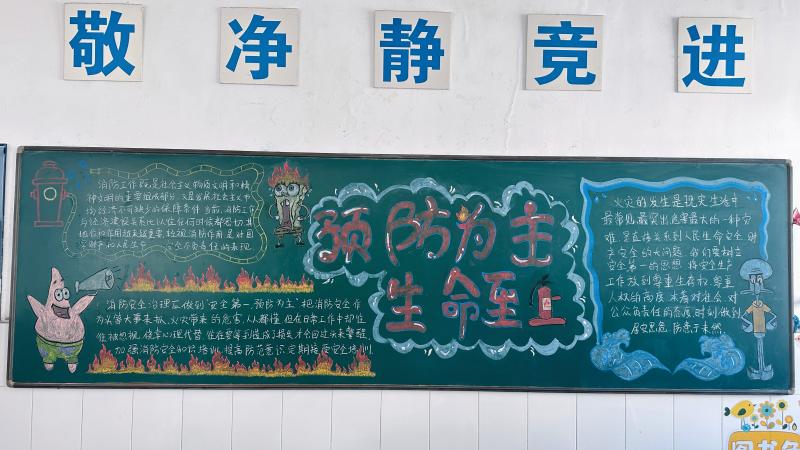 敬净静竞进
消防工作既是社会主义物质文明和精
神文明的重要组成部分,又是发展社会主义市
场经济不可缺少的保障条件
预防为主
生命至上
火灾的发生是现实生活中
最常见最突出危害最大的一种灾
难,是直接关系到人民生命安全财
产安全的大问题,我们要树立
安全第一的思想,将安全生产
工作放到尊重生存权,尊重
人权的高度,本着对社会,对
公众负责任的态度时刻做到
居安思危,防患于未然.
消防安全治理应做到"安全第一,预防为主",把消防安全作
为头等大事来抓,火灾带来的危害,人人都懂,但在日常工作中却往
往被忽视,侥幸心理代替,往往要等到造成了损失才会回过头来警醒
加强消防安全知识培训,提高防范意识,定期接受安全培训.
图书角